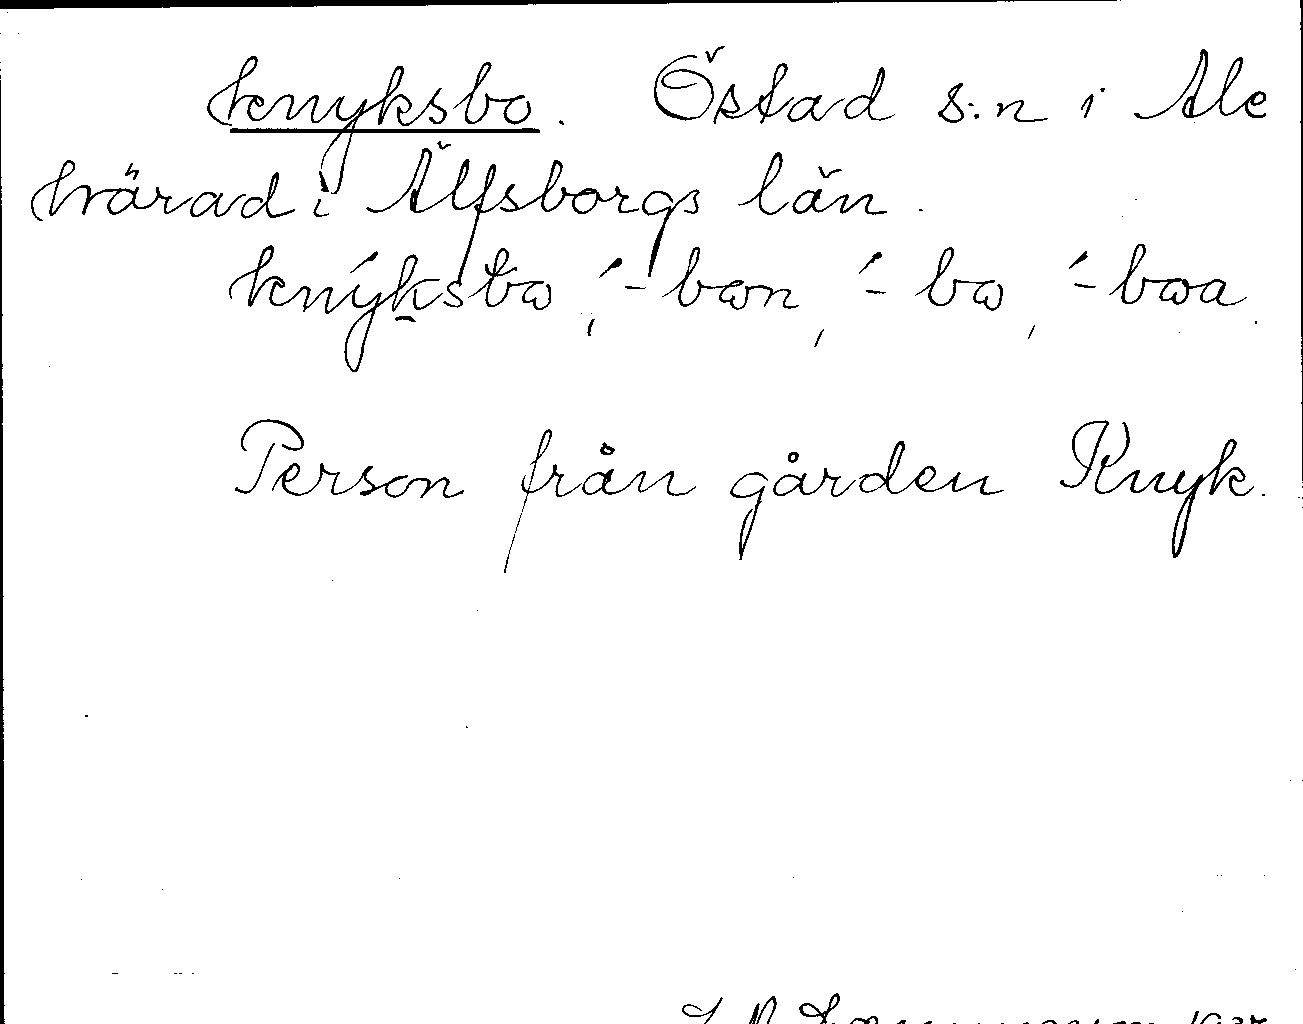 knyksbo. Östad s:n i Ale
härad i Älfsborgs län.
knýksbɷ, ́-bɷn, ́-bɷ, ́-bɷa.
Person från gården Knyk.